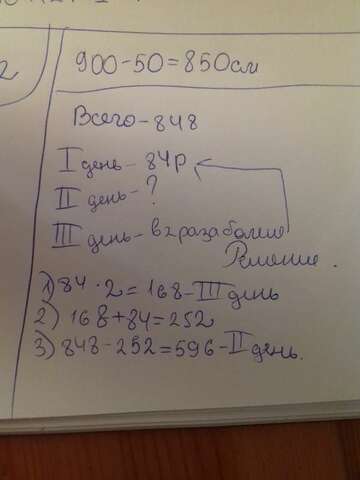 900-50=850см
Всего-848
I день-84р
II день-?
III день-в 2 раза более
Решение.
1) 84·2=168-III день
2) 168+84=252
3) 848-252=596-II день.